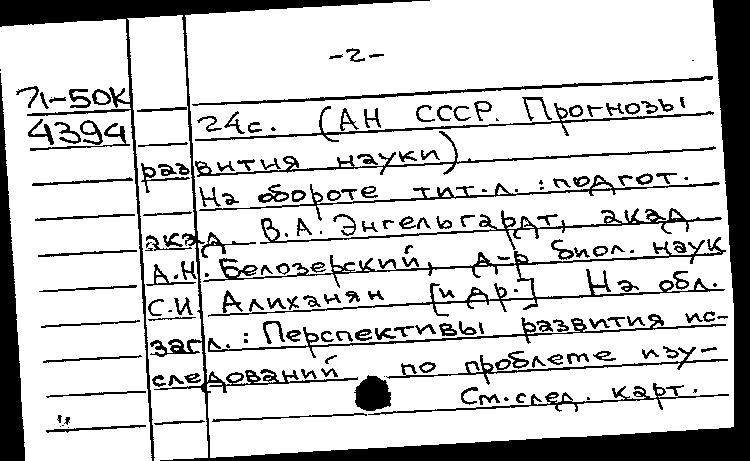 -2-
71-50К
4394
24с. (АН СССР. Прогнозы
развития науки).
На обороте тит.л.: подгот.
акад В.А. Энгельгардт, акад
А.Н. Белозерский, д-р биол. наук
С.И. Алиханян [и др.] На обл.
загл.: Перспективы развития ис-
следований по проблеме изу-
См.след. карт.